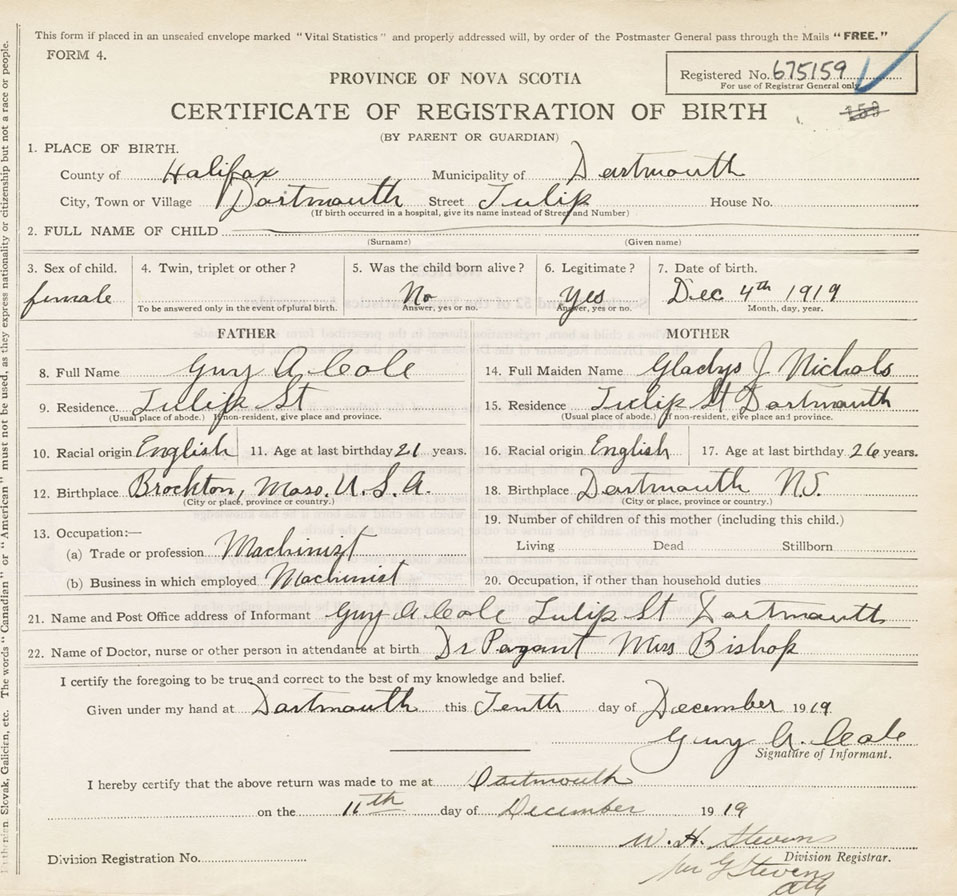 This form if placed in an unsealed envelope marked "Vital Statistics" and properly addressed will, by order of the Postmaster General pass through the Mails "FREE."
FORM 4.
Registered No. 675159
For use of Registrar General only
153
PROVINCE OF NOVA SCOTIA
CERTIFICATE OF REGISTRATION OF BIRTH
(BY PARENT OR GUARDIAN)
1. PLACE OF BIRTH.
County of Halifax Municipality of Dartmouth
City, Town or Village Dartmouth Street Tulip House No.
(If birth occurred in a hospital, give its name instead of Street and Number)
2. FULL NAME OF CHILD
(Surname) (Given name)
3. Sex of child. 4. Twin, triplet or other? 5. Was the child born alive? 6. Legitimate? 7. Date of birth.
female No Yes Dec 4th 1919
To be answered only in the event of plural birth. Answer, yes or no. Answer, yes or no. Month, day, year.
FATHER MOTHER
8. Full Name Guy A Cole 14. Full Maiden Name Gladys J Nichols
9. Residence. Tulip St 15. Residence Tulip St Dartmouth
(Usual place of abode.) If non-resident, give place and province. (Usual place of abode.) If non-resident, give place and province.
10. Racial origin English 11. Age at last birthday 21 years. 16. Racial origin English 17. Age at last birthday. 26 years.
12. Birthplace Brockton, Mass. U.S.A. 18. Birthplace Dartmouth N.S.
(City or place, province or country.) (City or place, province or country.)
13. Occupation:—
(a) Trade or profession Machinist
(b) Business in which employed Machinist
19. Number of children of this mother (including this child.)
Living Dead Stillborn
20. Occupation, if other than household duties
21. Name and Post Office address of Informant Guy A Cole Tulip St Dartmouth
22. Name of Doctor, nurse or other person in attendance at birth Dr Miss Bishop
I certify the foregoing to be true and correct to the best of my knowledge and belief.
Given under my hand at Dartmouth this Tenth day of December 1919.
Guy A. Cole
Signature of Informant.
I hereby certify that the above return was made to me at Dartmouth
on the 11th day of December 1919
W. H. Stevens
Division Registration No. Division Registrar.
per G Stevens
Slovak, Galicien, etc. The words "Canadian" or "American" must not be used, as they express nationality or citizenship but not a race or people.